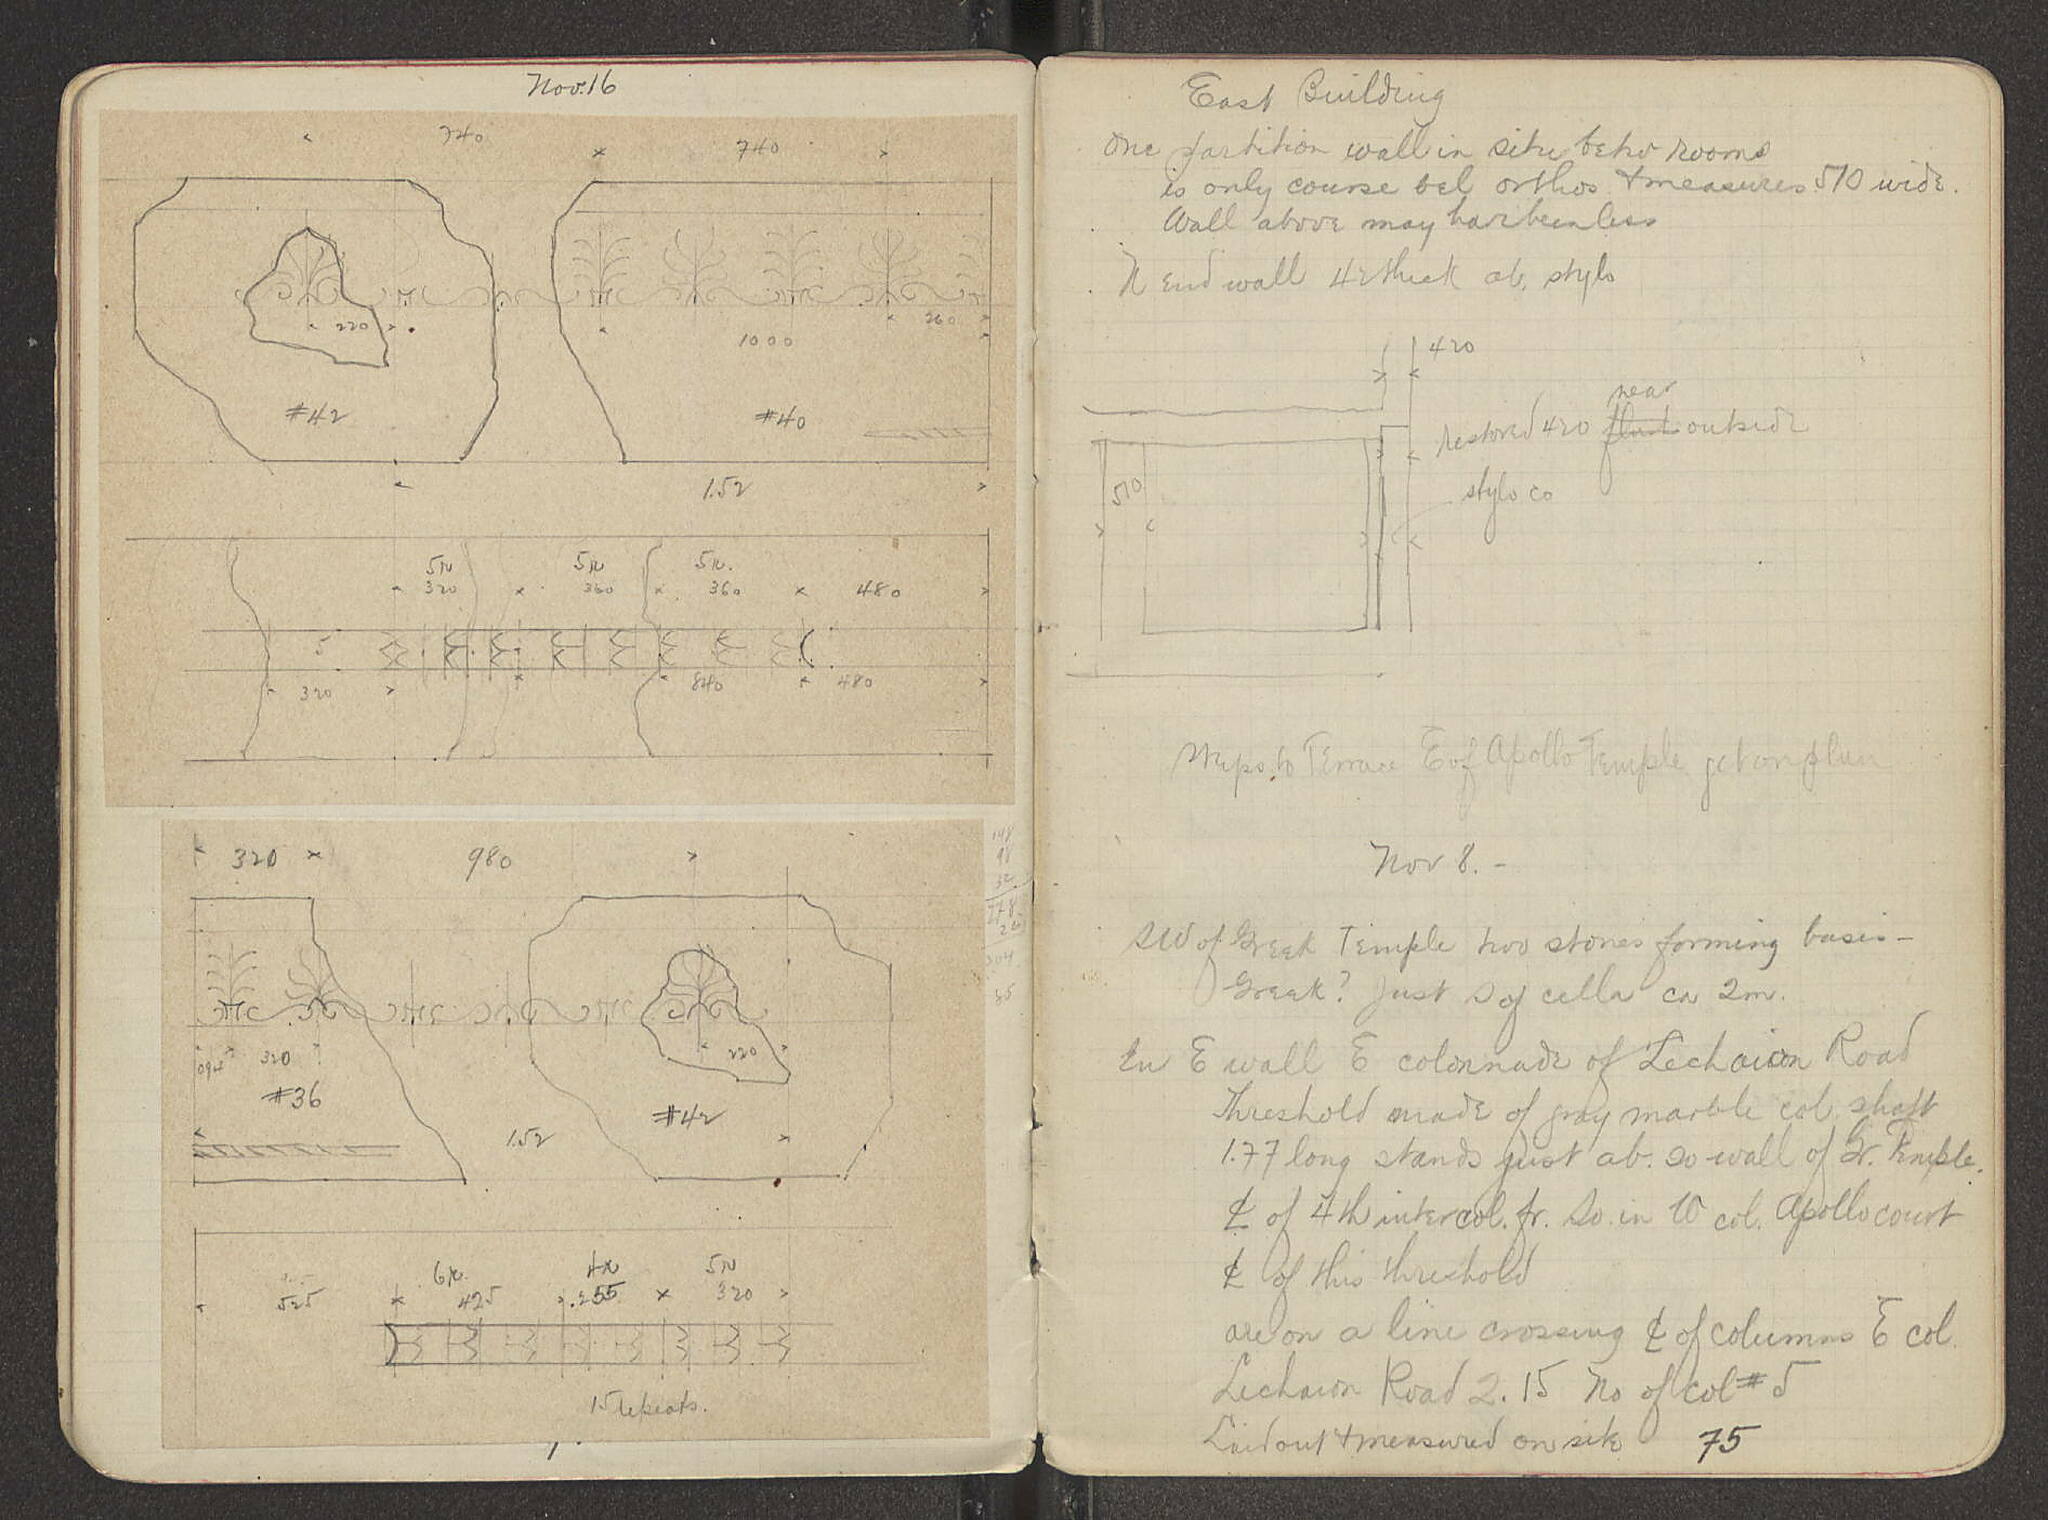 Nov. 16
740
740
220
1000
260
#42
#40
1.52
5R
5R
5R.
320
360
360
480
320
840
480
320
980
148
98
32
094
320
220
#36
1.52
#42
6R
4R
5R
525
425
.255
320
15 repeats.
East Building
One partition wall in situ betw rooms
is only course bel orthos & measures 510 wide.
Wall above may hav been less
N end wall 42 thick ab. stylo
420
near
restored 420 flush outside
510
stylo co
Steps to Terrace E of Apollo Temple get on plan
Nov 8. -
SW of Greek Temple two stones forming basis -
Greek? Just S of cella ca 2m.
In E wall E colonnade of Lechaion Road
Threshold made of gray marble col. shaft
1.77 long stands just ab. so wall of Gr. Temple.
℄ of 4th intercol. fr. So. in W col. Apollo court
℄ of this threshold
are on a line crossing ℄ of columns E col.
Lechaion Road 2.15 No of col # 5
Laid out & measured on site 75